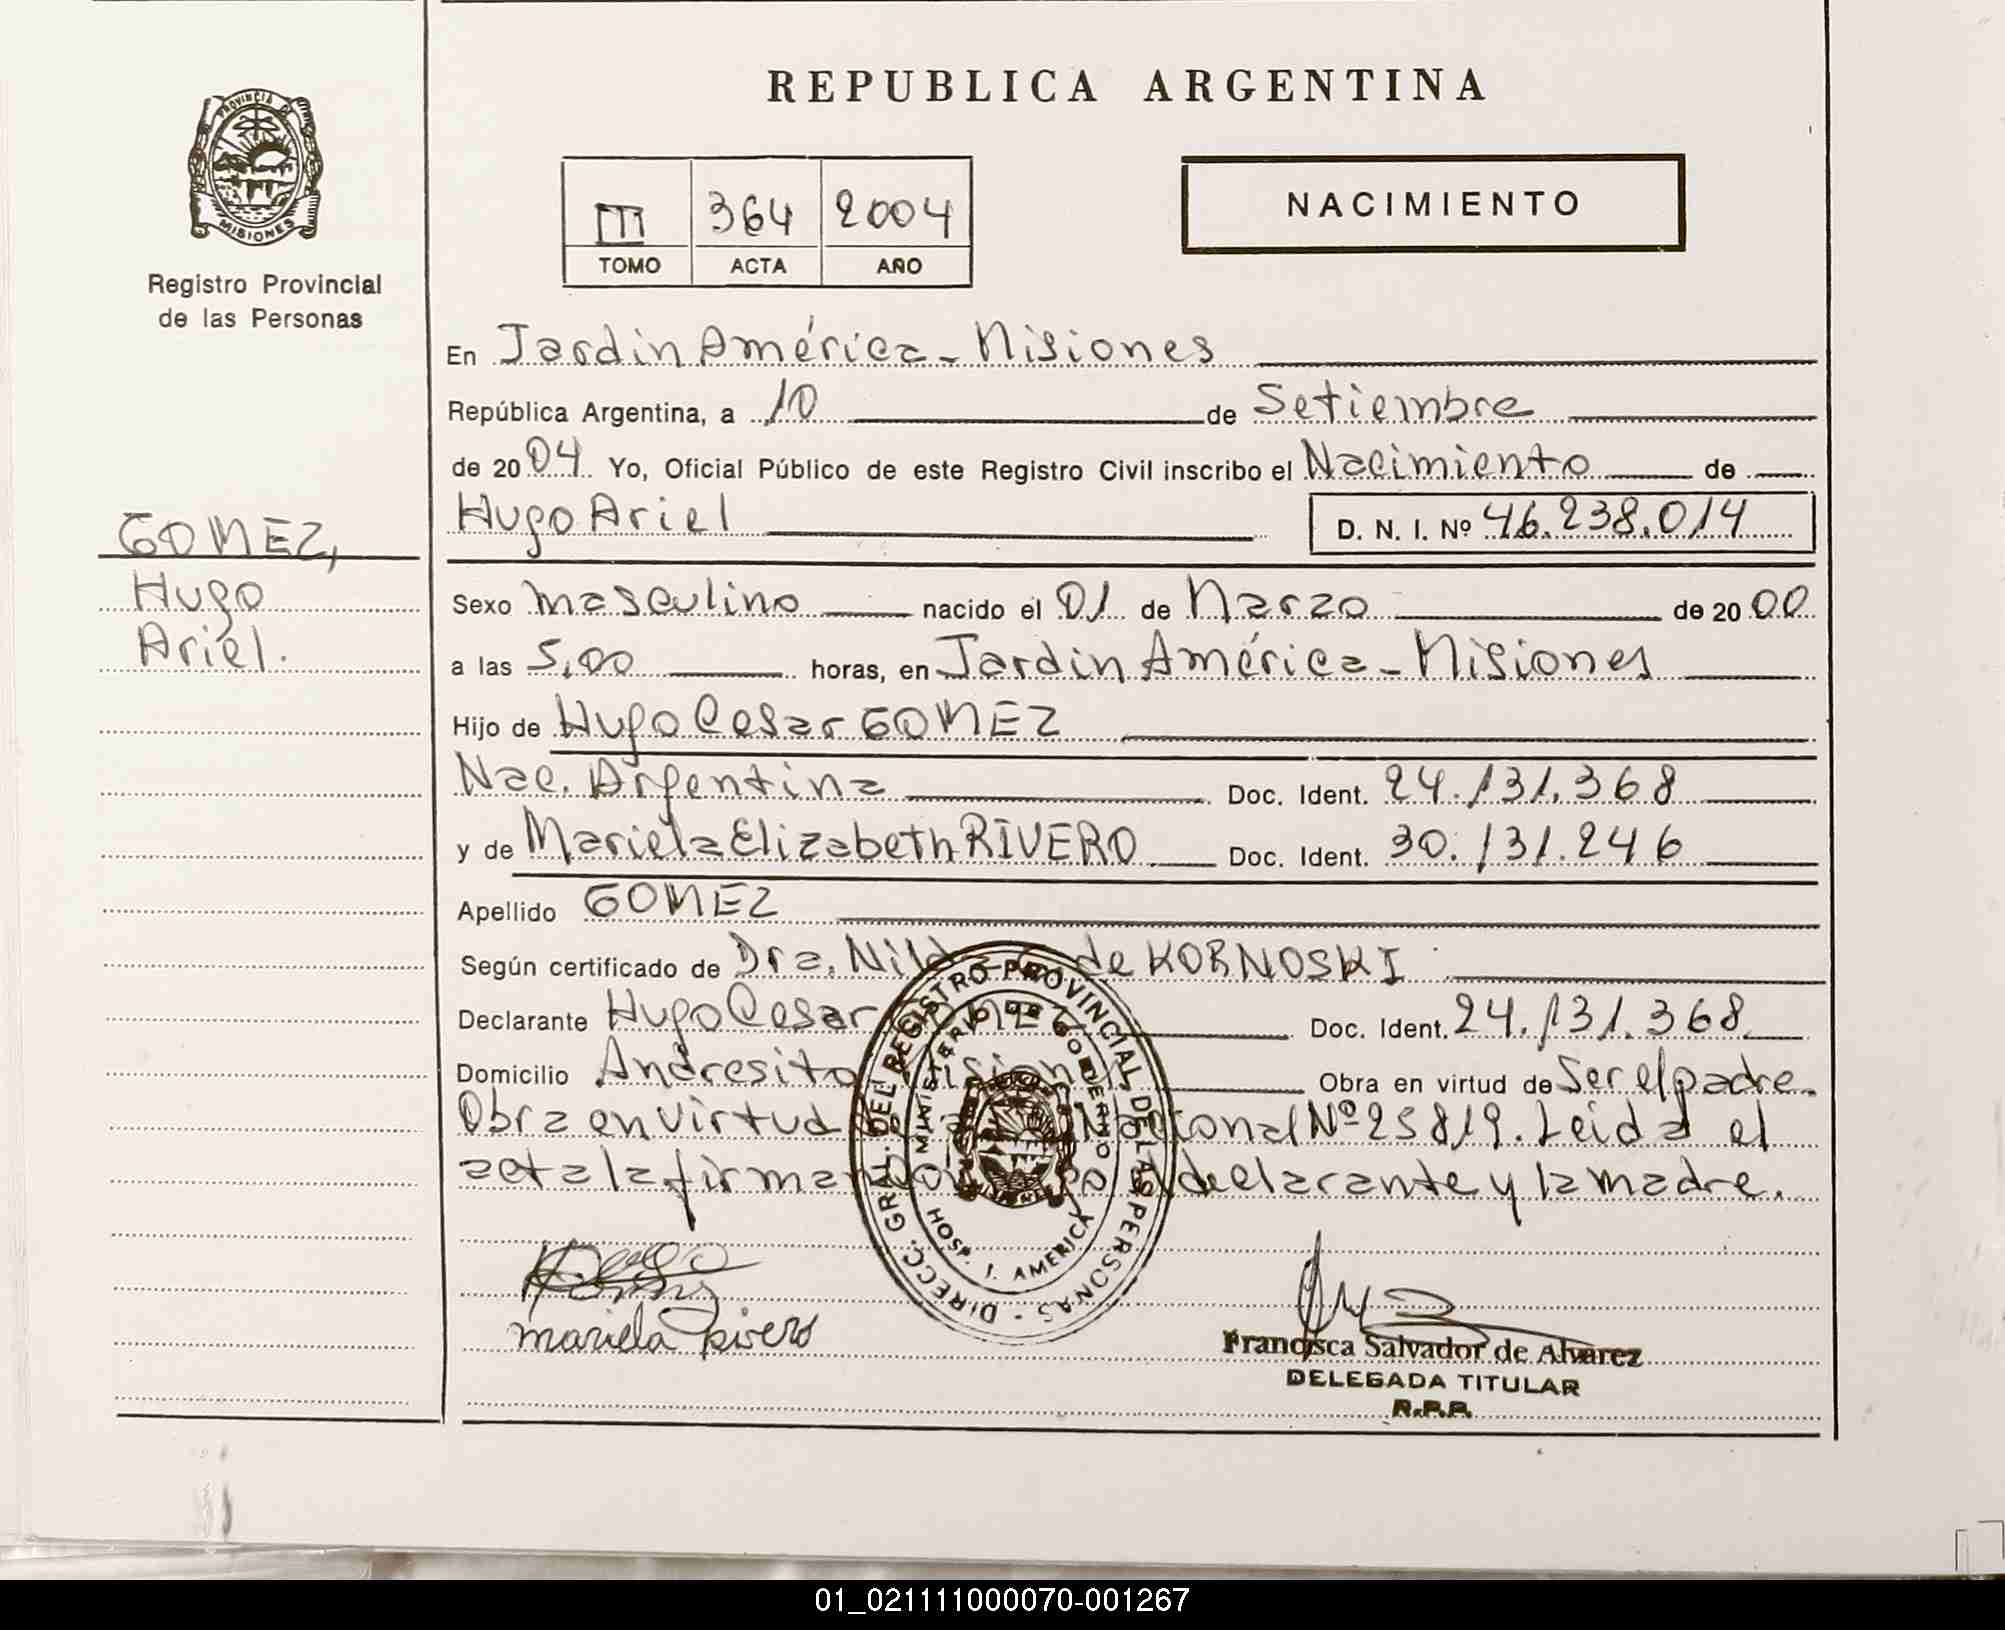 REPUBLICA ARGENTINA
PROVINCIA DE
MISIONES
Registro Provincial
de las Personas
III 364 2004
TOMO ACTA AÑO
NACIMIENTO
En Jardin América - Misiones
República Argentina, a 10 de Setiembre
de 2004 Yo, Oficial Público de este Registro Civil inscribo el Nacimiento de
Hugo Ariel D. N. I. Nº 46.238.014
GOMEZ,
Hugo
Ariel.
Sexo masculino nacido el 01 de Marzo de 2000
a las 5,00 horas, en Jardin América - Misiones
Hijo de Hugo Cesar GOMEZ
Nac. Argentina Doc. Ident. 24.131.368
y de Mariela Elizabeth RIVERO Doc. Ident. 30.131.246
Apellido GOMEZ
Según certificado de Dra. Nilda de KORNOSKI
Declarante Hugo Cesar Doc. Ident. 24.131.368
Domicilio Andresito Misiones Obra en virtud de Ser el padre.
Obra en virtud Nacional Nº 25819. Leida el
acta la firman el declarante y la madre.
DIRECC. GRAL. DEL REGISTRO PROVINCIAL DE LAS PERSONAS -
MINISTERIO DE GOBIERNO
HOSP. J. AMERICA
mariela rivero
Francisca Salvador de Alvarez
DELEGADA TITULAR
R.P.P.
01_021111000070-001267